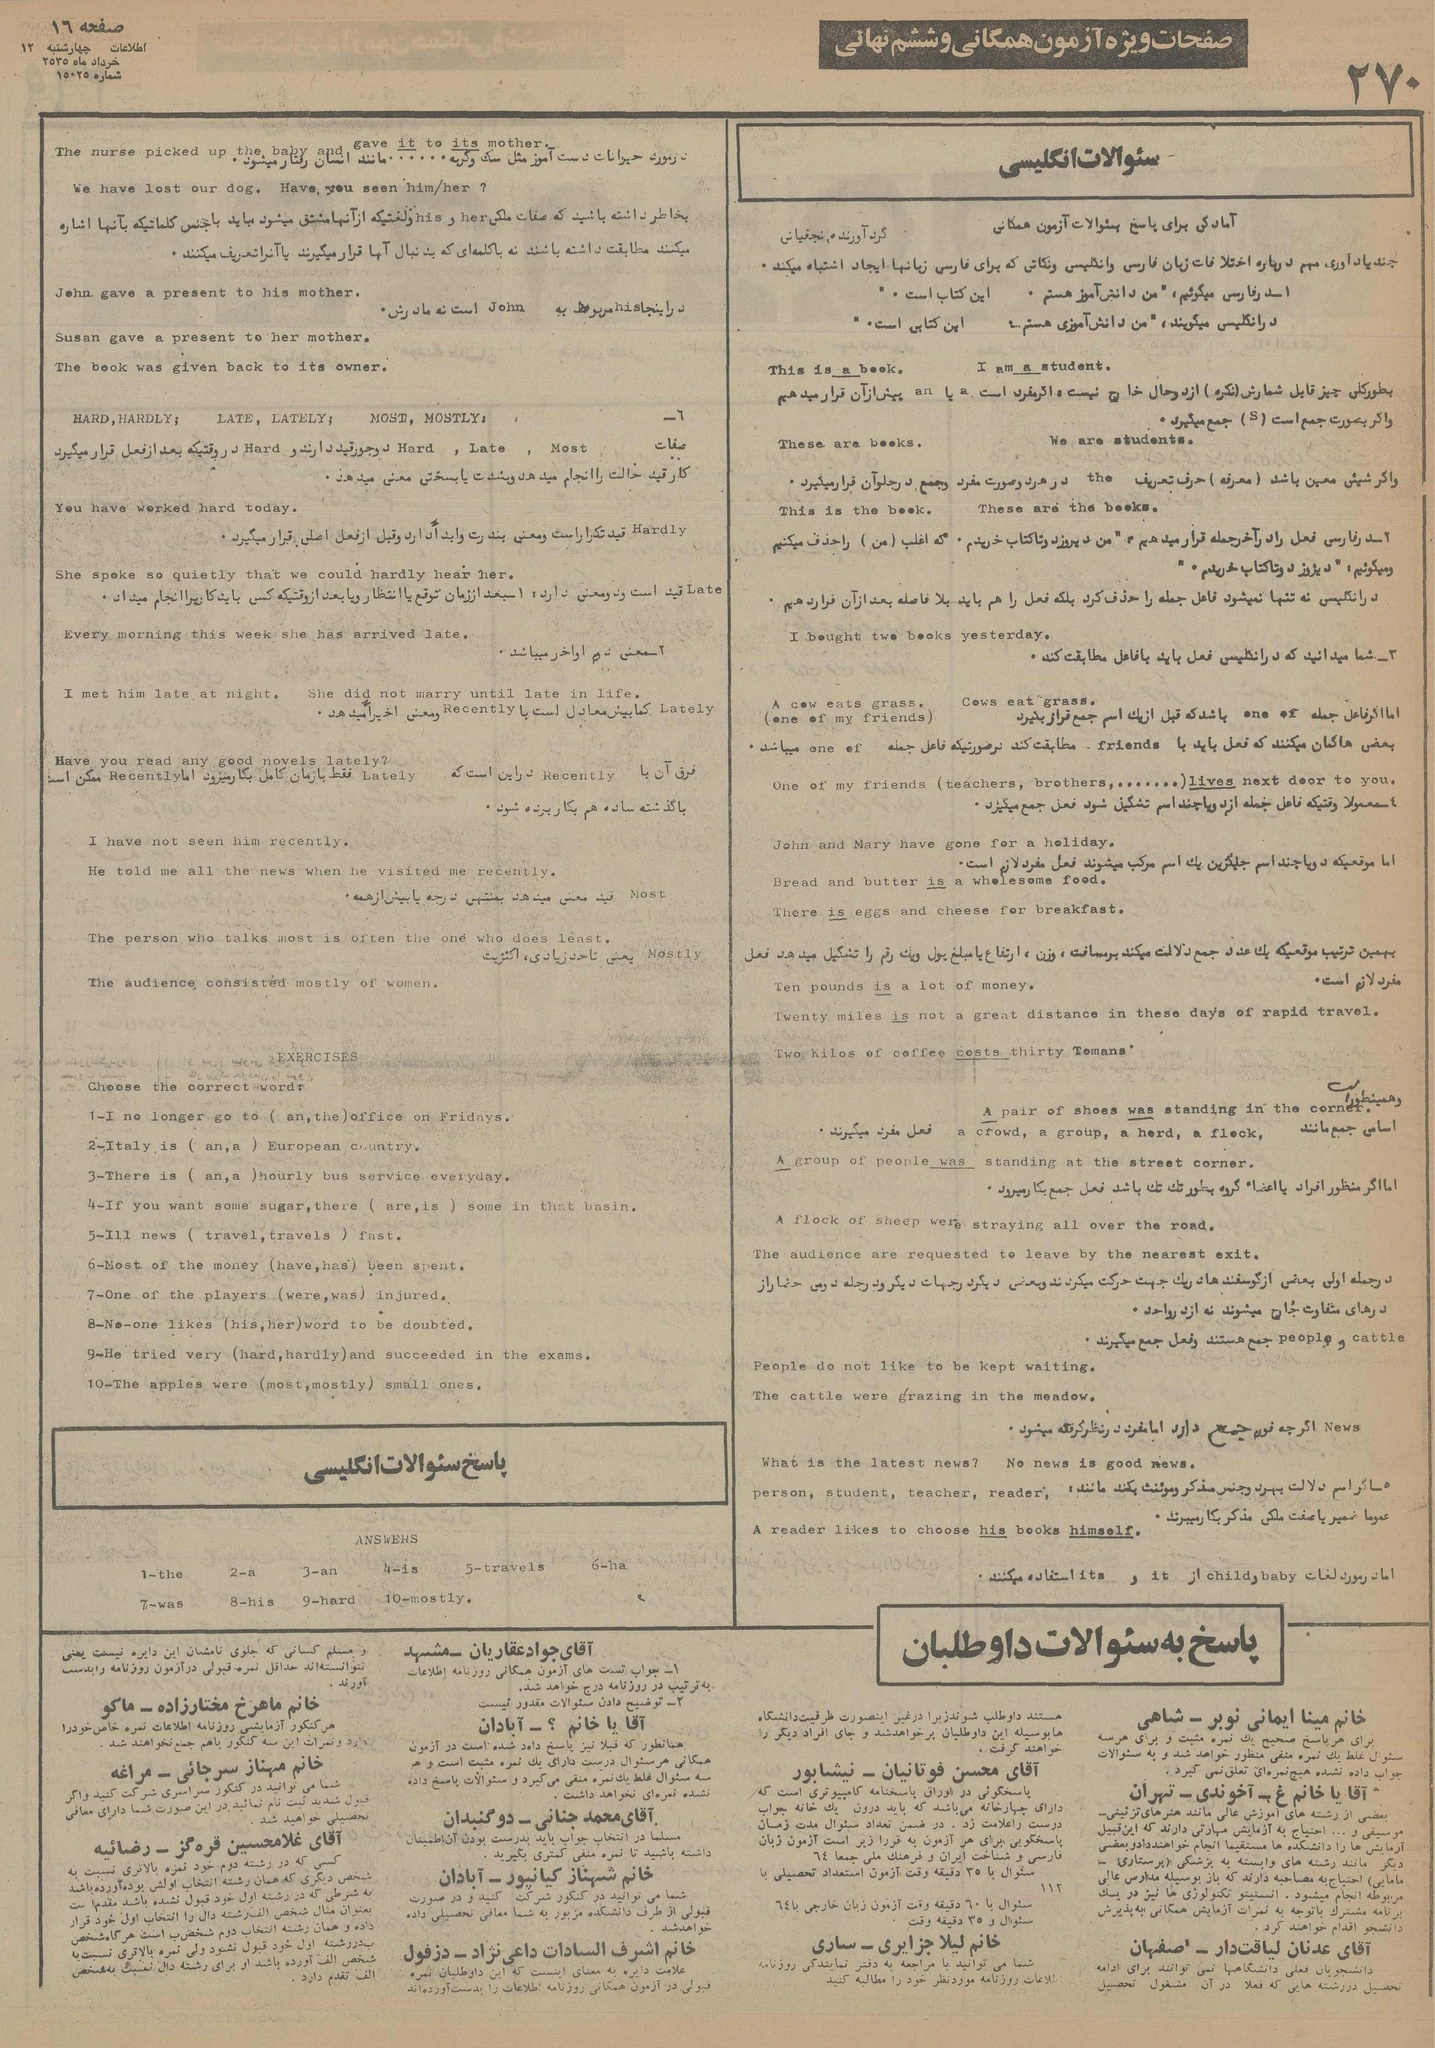 صفحه ۱۶
اطلاعات چهارشنبه ۱۲
خرداد ماه ۲۵۳۵
شماره ۱۵۰۲۵
صفحات ویژه آزمون همگانی و ششم نهائی
۲۷۰
سئوالات انگلیسی
آمادگی برای پاسخ بسئوالات آزمون همگانی
گردآورنده، نجفیانی
چند یادآوری مهم درباره اختلافات زبان فارسی و انگلیسی و نکاتی که برای فارسی زبانها ایجاد اشتباه میکند.
۱ـ در فارسی میگوئیم، "من دانش‌آموز هستم. این کتاب است."
در انگلیسی میگویند، "من دانش‌آموزی هستم. این کتابی است."
This is a book. I am a student.
بطورکلی چیز قابل شمارش (نکره) از دو حال خارج نیست، اگر مفرد است a یا an پیش از آن قرار میدهیم
و اگر بصورت جمع است (S) جمع میگیرد.
These are books. We are students.
و اگر شیئی معین باشد (معرفه) حرف تعریف the در هر دو صورت مفرد و جمع در جلو آن قرار میگیرد.
This is the book. These are the books.
۲ـ در فارسی فعل را در آخر جمله قرار میدهیم، "من دیروز دو تا کتاب خریدم." که اغلب (من) را حذف میکنیم
و میگوئیم: "دیروز دو تا کتاب خریدم."
در انگلیسی نه تنها نمیشود فاعل جمله را حذف کرد بلکه فعل را هم باید بلا فاصله بعد از آن قرار دهیم.
I bought two books yesterday.
۳ـ شما میدانید که در انگلیسی فعل باید با فاعل مطابقت کند.
A cow eats grass. Cows eat grass.
اما اگر فاعل جمله one of باشد که قبل از یک اسم جمع قرار بگیرد (one of my friends)
بعضی ها گمان میکنند که فعل باید با friends مطابقت کند در صورتیکه فاعل جمله one of میباشد.
One of my friends (teachers, brothers,.......) lives next door to you.
۴ـ معمولا وقتیکه فاعل جمله از دو یا چند اسم تشکیل شود فعل جمع میگیرد.
John and Mary have gone for a holiday.
اما موقعیکه دو یا چند اسم جایگزین یک اسم مرکب میشوند فعل مفرد لازم است.
Bread and butter is a wholesome food.
There is eggs and cheese for breakfast.
بهمین ترتیب موقعیکه یک عدد جمع دلالت میکند بر مسافت، وزن، ارتفاع یا مبلغ پول و یک رقم را تشکیل میدهد فعل
مفرد لازم است.
Ten pounds is a lot of money.
Twenty miles is not a great distance in these days of rapid travel.
Two Kilos of coffee costs thirty Tomans
و همینطور است
A pair of shoes was standing in the corner.
اسامی جمع مانند a crowd, a group, a herd, a flock, فعل مفرد میگیرند.
A group of people was standing at the street corner.
اما اگر منظور افراد یا اعضاء گروه بطور تک تک باشد فعل جمع بکار میرود.
A flock of sheep were straying all over the road.
The audience are requested to leave by the nearest exit.
در جمله اولی بعضی از گوسفندها در یک جهت حرکت میکردند و بعضی دیگر در جهات دیگر و در جمله دومی حضار از
درهای متفاوت خارج میشوند نه از در واحد.
cattle و people جمع هستند و فعل جمع میگیرند.
People do not like to be kept waiting.
The cattle were grazing in the meadow.
News اگر چه فورم جمع دارد اما مفرد در نظر گرفته میشود.
What is the latest news? No news is good news.
۵ـ اگر اسم دلالت بهر دو جنس مذکر و مونث بکند مانند: person, student, teacher, reader,
عموما ضمیر یا صفت ملکی مذکر بکار میبرند.
A reader likes to choose his books himself.
اما در مورد لغات baby و child از it و its استفاده میکنند.
The nurse picked up the baby and gave it to its mother.
در مورد حیوانات دست آموز مثل سگ و گربه ...... مانند انسان رفتار میشود.
We have lost our dog. Have you seen him/her ?
بخاطر داشته باشید که صفات ملکی her و his و لغتیکه از آنها مشتق میشود باید با جنس کلماتیکه بآنها اشاره
میکنند مطابقت داشته باشند نه با کلمه‌ای که بدنبال آنها قرار میگیرند یا آنرا تعریف میکنند.
John gave a present to his mother.
در اینجا his مربوط به John است نه مادرش.
Susan gave a present to her mother.
The book was given back to its owner.
۶ـ HARD,HARDLY; LATE, LATELY; MOST, MOSTLY:
صفات Hard , Late , Most دو جور قید دارند و Hard در وقتیکه بعد از فعل قرار میگیرد
کار قید حالت را انجام میدهد و بشدت یا بسختی معنی میدهد.
You have worked hard today.
Hardly قید تکرار است و معنی بندرت و ابداً دارد و قبل از فعل اصلی قرار میگیرد.
She spoke so quietly that we could hardly hear her.
Late قید است و دو معنی دارد: ۱ـ بعد از زمان توقع یا انتظار و یا بعد از وقتیکه کسی باید کار را انجام میداد.
Every morning this week she has arrived late.
۲ـ معنی دوم اواخر میباشد.
I met him late at night. She did not marry until late in life.
Lately کمابیش معادل است با Recently و معنی اخیراً میدهد.
Have you read any good novels lately?
فرق آن با Recently در این است که Lately فقط با زمان کامل بکار میرود اما Recently ممکن است
با گذشته ساده هم بکار برده شود.
I have not seen him recently.
He told me all the news when he visited me recently.
Most قید معنی میدهد بمنتهی درجه یا بیش از همه.
The person who talks most is often the one who does least.
Mostly یعنی تا حد زیادی، اکثریت
The audience consisted mostly of women.
EXERCISES
Choose the correct word:
1-I no longer go to ( an,the)office on Fridays.
2-Italy is ( an,a ) European country.
3-There is ( an,a )hourly bus service everyday.
4-If you want some sugar,there ( are,is ) some in that basin.
5-Ill news ( travel,travels ) fast.
6-Most of the money (have,has) been spent.
7-One of the players (were,was) injured.
8-No-one likes (his,her)word to be doubted.
9-He tried very (hard,hardly)and succeeded in the exams.
10-The apples were (most,mostly) small ones.
پاسخ سئوالات انگلیسی
ANSWERS
1-the 2-a 3-an 4-is 5-travels 6-ha
7-was 8-his 9-hard 10-mostly.
پاسخ به سئوالات داوطلبان
خانم مینا ایمانی نوبر ـ شاهی
برای هر پاسخ صحیح یک نمره مثبت و برای هر سه
سئوال غلط یک نمره منفی منظور خواهد شد و به سئوالات
جواب داده نشده هیچ نمره‌ای تعلق نمی گیرد.
آقا یا خانم غ ـ آخوندی ـ تهران
بعضی از رشته های آموزش عالی مانند هنرهای تزئینی ـ
موسیقی و ... احتیاج به آزمایش مهارتی دارند که این قبیل
آزمایش ها را دانشکده ها مستقیما انجام خواهند داد و بعضی
دیگر مانند رشته های وابسته به پزشکی (پرستاری ـ
مامایی) احتیاج به مصاحبه دارند که باز بوسیله مدارس عالی
مربوطه انجام میشود. انستیتو تکنولوژی ها نیز در یک
برنامه مشترک باتوجه به نمرات آزمایش همگانی به پذیرش
دانشجو اقدام خواهند کرد.
آقای عدنان لیاقت‌دار ـ اصفهان
دانشجویان فعلی دانشگاهها نمی توانند برای ادامه
تحصیل در رشته هایی که فعلا در آن مشغول تحصیل
هستند داوطلب شوند زیرا در غیر اینصورت ظرفیت دانشگاه
ها بوسیله این داوطلبان پر خواهد شد و جای افراد دیگر را
خواهند گرفت.
آقای محسن فوتانیان ـ نیشابور
پاسخگوئی در اوراق پاسخنامه کامپیوتری است که
دارای چهارخانه می‌باشد که باید درون یک خانه جواب
درست را علامت زد. در ضمن تعداد سئوال مدت زمان
پاسخگویی برای هر آزمون به قرار زیر است آزمون زبان
فارسی و شناخت ایران و فرهنگ ملی جمعا ۶۴
سئوال با ۳۵ دقیقه وقت آزمون استعداد تحصیلی با
۱۱۲
سئوال با ۶۰ دقیقه وقت آزمون زبان خارجی با ۶۴
سئوال و ۳۵ دقیقه وقت.
خانم لیلا جزایری ـ ساری
شما می توانید با مراجعه به دفتر نمایندگی روزنامه
اطلاعات روزنامه موردنظر خود را مطالبه کنید
آقای جواد عقاریان ـ مشهد
۱ـ جواب تست های آزمون همگانی روزنامه اطلاعات
به ترتیب در روزنامه درج خواهد شد.
۲ـ توضیح دادن سئوالات مقدور نیست
آقا یا خانم ؟ ـ آبادان
همانطور که قبلا نیز پاسخ داده شده است در آزمون
همگانی هر سئوال درست دارای یک نمره مثبت است و هر
سه سئوال غلط یک نمره منفی می‌گیرد و سئوالات پاسخ داده
نشده نمره‌ای نخواهد داشت.
آقای محمد جنانی ـ دوگنبدان
مسلما در انتخاب جواب باید بدرست بودن آن اطمینان
داشته باشید تا نمره منفی کمتری بگیرید.
خانم شهناز کیانپور ـ آبادان
شما می توانید در کنکور شرکت کنید و در صورت
قبولی از طرف دانشکده مزبور به شما معافی تحصیلی داده
خواهد شد.
خانم اشرف السادات داعی نژاد ـ دزفول
علامت دایره به معنای اینست که این داوطلبان نمره
قبولی در آزمون همگانی روزنامه اطلاعات را بدست آورده‌اند
و مسلم کسانی که جلوی نامشان این دایره نیست یعنی
نتوانسته‌اند حداقل نمره قبولی در آزمون روزنامه را بدست
آورند.
خانم ماهرخ مختارزاده ـ ماکو
هر کنکور آزمایشی روزنامه اطلاعات نمره خاص خود را
دارد و نمرات این سه کنکور باهم جمع نخواهند شد.
خانم مهناز سرجائی ـ مراغه
شما می توانید در کنکور سراسری شرکت کنید و اگر
قبول شدید ثبت نام نمائید در این صورت شما دارای معافی
تحصیلی خواهید شد.
آقای غلامحسین قره‌گز ـ رضائیه
کسی که در رشته دوم خود نمره بالاتری نسبت به
شخص دیگری که همان رشته انتخاب اولش بوده آورده باشد
به شرطی که در رشته اول خود قبول نشده باشد مقدم است
بعنوان مثال شخص الف رشته دال را انتخاب اول خود قرار
داده و همان رشته انتخاب دوم شخص ب است هرگاه شخص
ب در رشته اول خود قبول نشود ولی نمره بالاتری نسبت به
شخص الف آورده باشد او برای رشته دال نسبت به شخص
الف تقدم دارد.